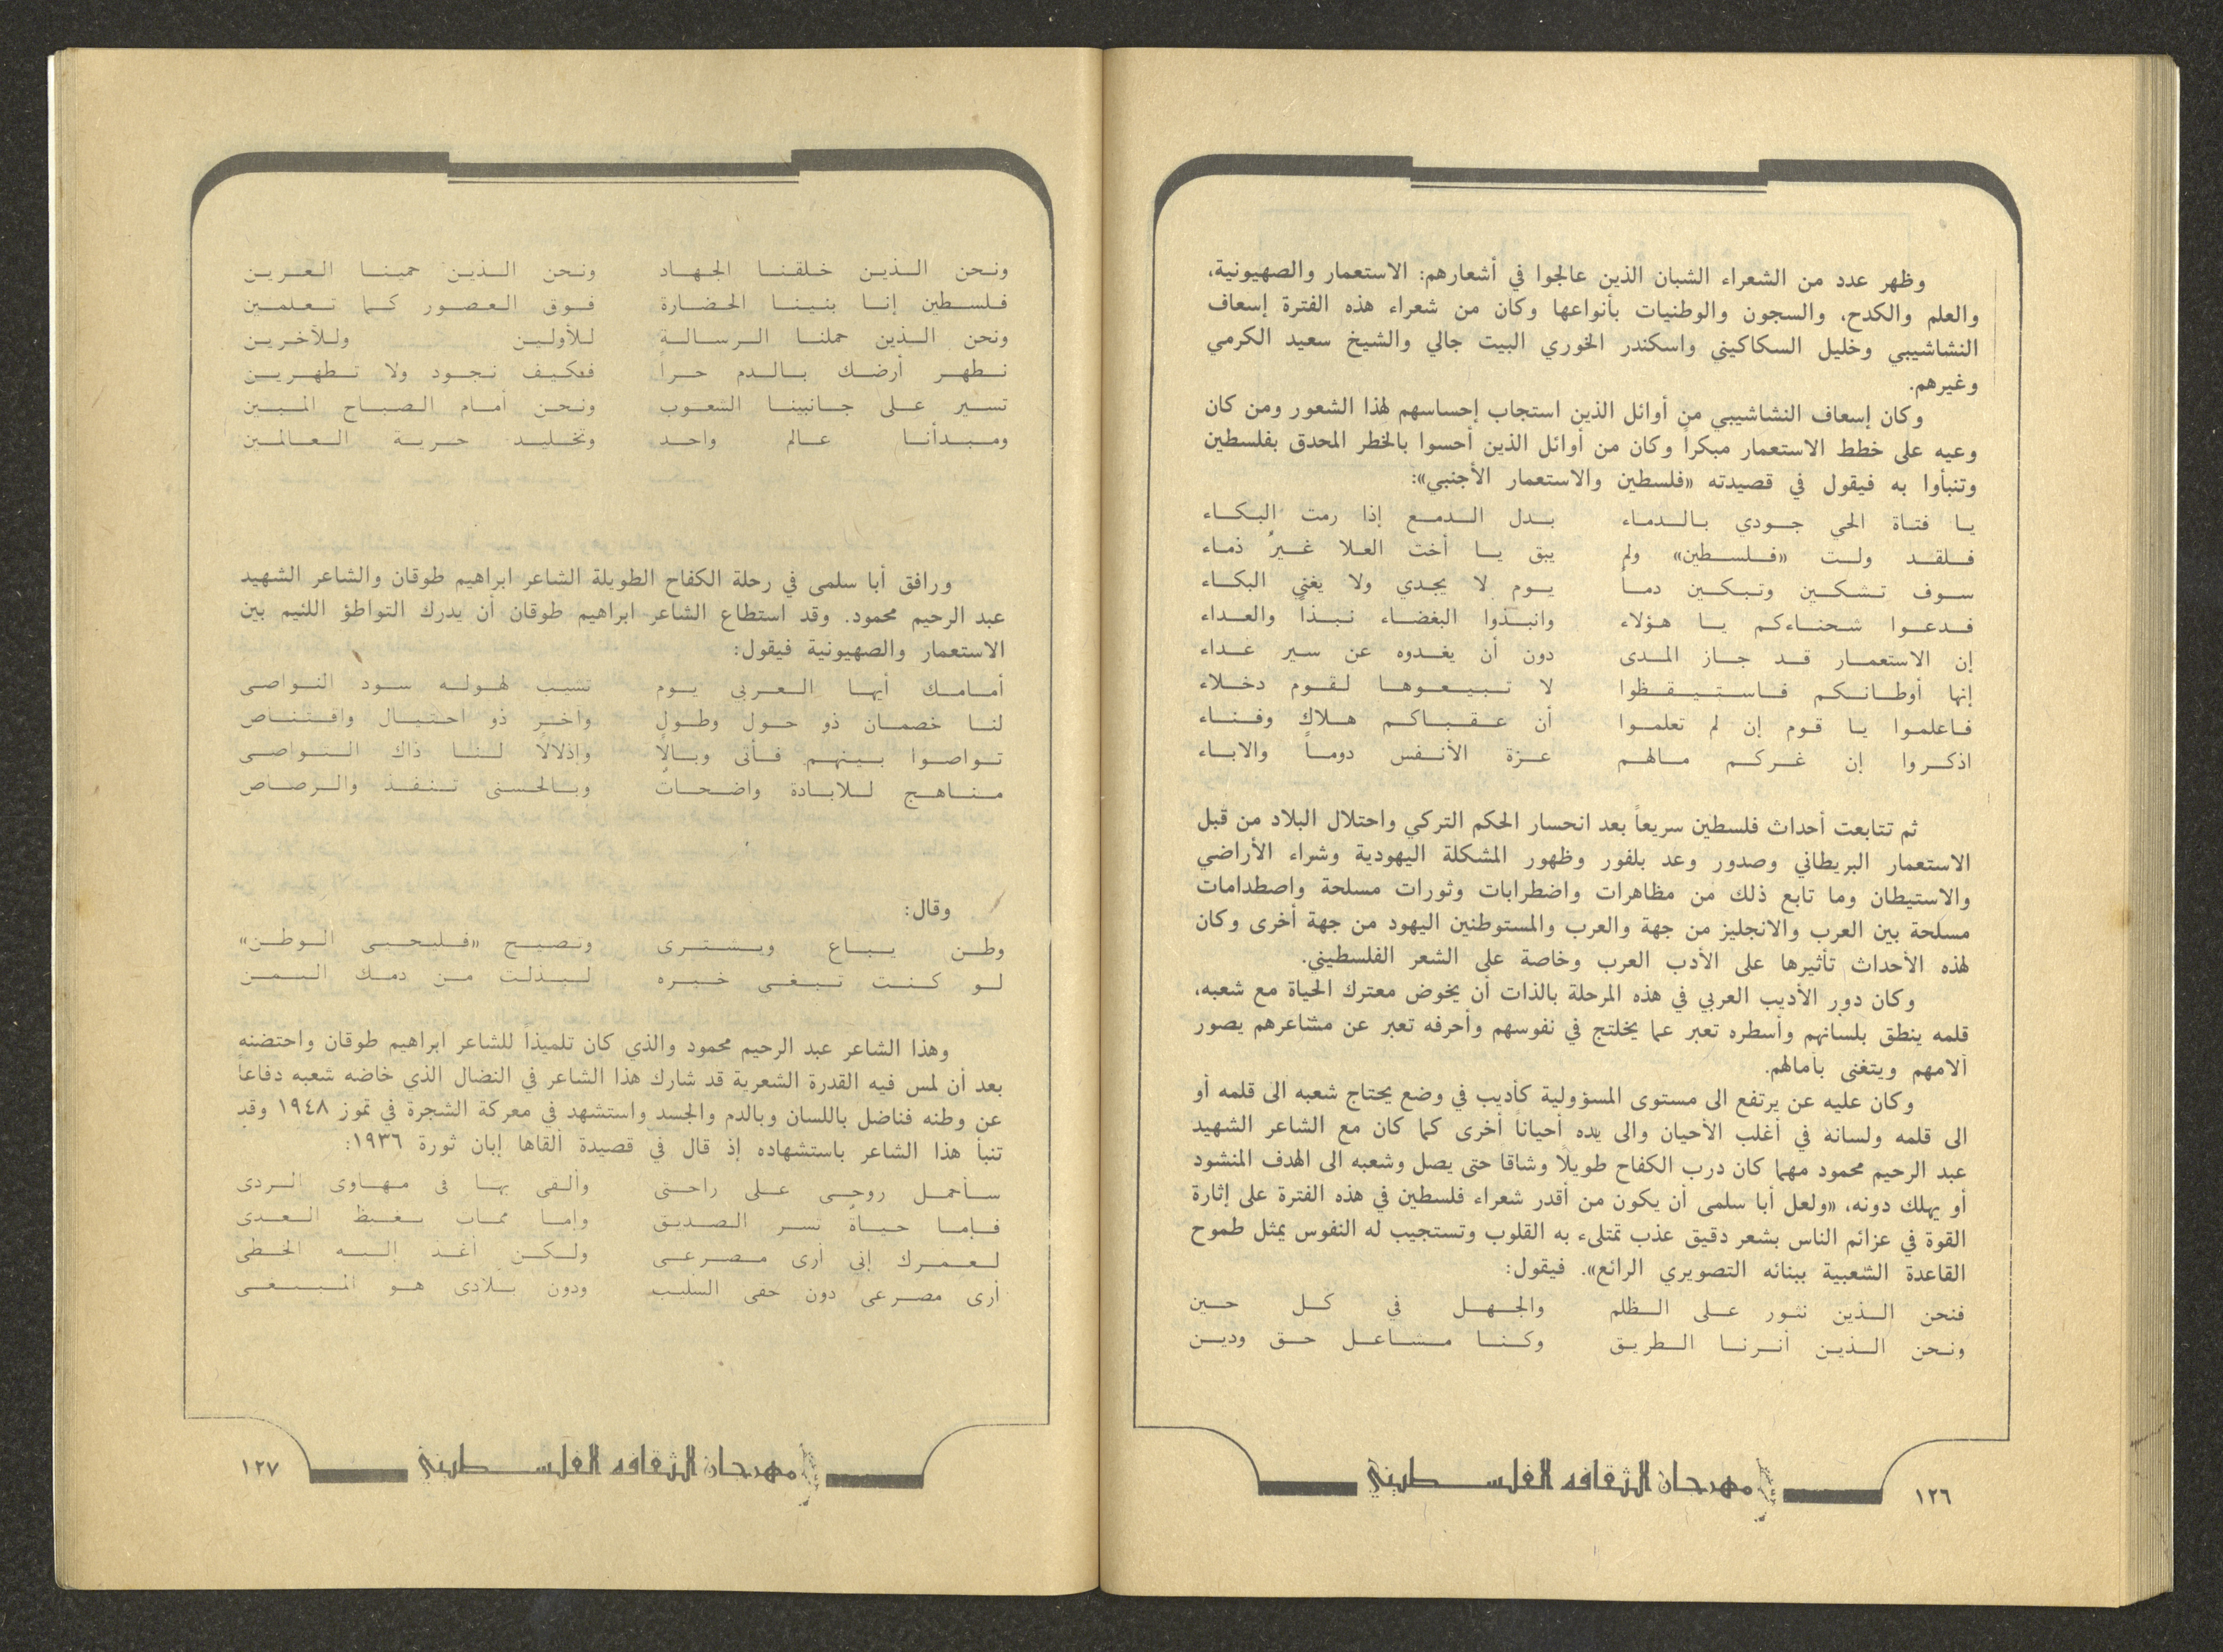 وظهر عدد من الشعراء الشبان الذين عالجوا في أشعارهم: الاستعمار والصهيونية،
والعلم والكدح، والسجون والوطنيات بأنواعها وكان من شعراء هذه الفترة إسعاف
النشاشيبي وخليل السكاكيني واسكندر الخوري البيت جالي والشيخ سعيد الكرمي
وغيرهم.
وكان إسعاف النشاشيبي من أوائل الذين استجاب إحساسهم لهذا الشعور ومن كان
وعيه على خطط الاستعمار مبكراً وكان من أوائل الذين أحسوا بالخطر المحدق بفلسطين
وتنبأوا به فيقول في قصيدته «فلسطين والاستعمار الأجنبي»:
يا فتاة الحي جودي بالدماء بدل الدمع إذا رمت البكاء
فلقد ولت «فلسطين» ولم يبق يا أخت العلا غيرُ ذماء
سوف تشكين وتبكين دماً يوم لا يجدي ولا يغني البكاء
فدعوا شحناءكم يا هؤلاء وانبذوا البغضاء نبذاً والعداء
إن الاستعمار قد جاز المدى دون أن يغدوه عن سير غداء
إنها أوطانكم فاستيقظوا لا تبيعوها لقوم دخلاء
فاعلموا يا قوم إن لم تعلموا أن عقباكم هلاك وفناء
اذكروا إن غركم مالهم عزة الأنفس دوماً والاباء
ثم تتابعت أحداث فلسطين سريعاً بعد انحسار الحكم التركي واحتلال البلاد من قبل
الاستعمار البريطاني وصدور وعد بلفور وظهور المشكلة اليهودية وشراء الأراضي
والاستيطان وما تابع ذلك من مظاهرات واضطرابات وثورات مسلحة واصطدامات
مسلحة بين العرب والانجليز من جهة والعرب والمستوطنين اليهود من جهة أخرى وكان
لهذه الأحداث تأثيرها على الأدب العرب وخاصة على الشعر الفلسطيني.
وكان دور الأديب العربي في هذه المرحلة بالذات أن يخوض معترك الحياة مع شعبه،
قلمه ينطق بلسانهم وأسطره تعبر عما يختلج في نفوسهم وأحرفه تعبر عن مشاعرهم يصور
آلامهم ويتغنى بآمالهم.
وكان عليه عن يرتفع الى مستوى المسؤولية كأديب في وضع يحتاج شعبه الى قلمه أو
الى قلمه ولسانه في أغلب الأحيان والى يده أحياناً أخرى كما كان مع الشاعر الشهيد
عبد الرحيم محمود مهما كان درب الكفاح طويلاً وشاقا حتى يصل وشعبه الى الهدف المنشود
أو يهلك دونه، «ولعل أبا سلمى أن يكون من أقدر شعراء فلسطين في هذه الفترة على إثارة
القوة في عزائم الناس بشعر دقيق عذب تمتلىء به القلوب وتستجيب له النفوس يمثل طموح
القاعدة الشعبية ببنائه التصويري الرائع». فيقول:
فنحن الذين نثور على الظلم والجهل في كل حين
ونحن الذين أنرنا الطريق وكنا مشاعل حق ودين
مهرجان الثقافه الفلسطيني
١٢٦
ونحن الذين خلقنا الجهاد ونحن الذين حمينا العرين
فلسطين إنا بنينا الحضارة فوق العصور كما تعلمين
ونحن الذين حملنا الرسالة للأولين وللأخرين
نطهر أرضك بالدم حراً فكيف نجود ولا تطهرين
تسير على جانبينا الشعوب ونحن أمام الصباح المبين
ومبدأنا عالم واحد وتخليد حرية العالمين
ورافق أبا سلمى في رحلة الكفاح الطويلة الشاعر ابراهيم طوقان والشاعر الشهيد
عبد الرحيم محمود. وقد استطاع الشاعر ابراهيم طوقان أن يدرك التواطؤ اللئيم بين
الاستعمار والصهيونية فيقول:
أمامك أيها العربي يوم تشيب لهوله سود النواصي
لنا خصمان ذو حول وطول وآخر ذو احتيال واقتناص
تواصوا بينهم فأتى وبالا وإذلالاً لنا ذاك التواصي
مناهج للابادة واضحات وبالحسنى تنفذ والرصاص
وقال:
وطن يباع ويشترى وتصيح «فليحيى الوطن»
لو كنت تبغي خبره لبذلت من دمك الثمن
وهذا الشاعر عبد الرحيم محمود والذي كان تلميذاً للشاعر ابراهيم طوقان واحتضنه
بعد أن لمس فيه القدرة الشعرية قد شارك هذا الشاعر في النضال الذي خاضه شعبه دفاعاً
عن وطنه فناضل باللسان وبالدم والجسد واستشهد في معركة الشجرة في تموز ١٩٤٨ وقد
تنبأ هذا الشاعر باستشهاده إذ قال في قصيدة ألقاها إبان ثورة ١٩٣٦:
سأحمل روحي على راحتي وألقي بها في مهاوي الردى
فإما حياة تسر الصديق وإما ممات يغيظ العدى
لعمرك إني أرى مصرعي ولكن أغذ إليه الخطى
أرى مصرعي دون حقي السليب ودون بلادي هو المبتغى
مهرجان الثقافه الفلسطيني
١٢٧